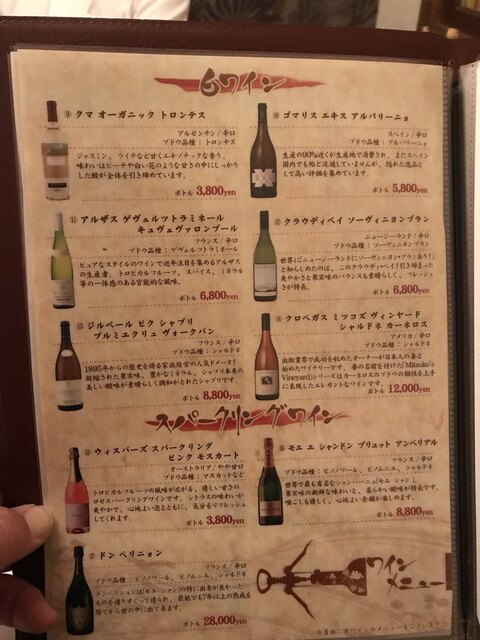 白ワイン
⑨ クマ オーガニック トロンテス
アルゼンチン / 辛口
ブドウ品種：トロンテス
ジャスミン、ライチなど甘くエキゾチックな香り、
味わいはピーチや白い花のような甘さの中にしっかり
した酸が全体を引き締めています。
ボトル 3,800yen
⑩ ゴマリス エキス アルバリーニョ
スペイン / 辛口
ブドウ品種：アルバリーニョ
生産の90%近くが生産地で消費され、まだスペイン
国内でも殆ど流通していませんが、隠れた逸品とし
て高い評価を集めています。
ボトル 5,800yen
⑪ アルザス ゲヴェルツトラミネール
キュヴェヴァロンブール
フランス / 辛口
ブドウ品種：ゲヴェルツトラミネール
ピュアなスタイルのワインで近年注目を集めるアルザス
の生産者。トロピカルフルーツ、スパイス、ミネラル
等の一体感のある官能的な風味。
ボトル 6,800yen
⑫ クラウディベイ ソーヴィニヨンブラン
ニュージーランド / 辛口
ブドウ品種：ソーヴィニヨンブラン
世界に｢ニュージーランドにソーヴィニヨンブランあり!｣
と知らしめたのは、このクラウディ･ベイ!引き締まった
爽やかさと果実味のバランスも素晴らしく、フレッシュ
さが特長。
ボトル 6,800yen
⑬ ジルベール ピク シャブリ
プルミエクリュ ヴォークパン
フランス / 辛口
ブドウ品種：シャルドネ
1895年からの歴史を誇る家族経営の人気ドメーヌ!
凝縮された果実味、豊かなミネラル、シャブリ本来の
美しい酸味が素晴らしく調和がとれたシャブリです。
ボトル 8,800yen
⑭ クロペガス ミツコズ ヴィンヤード
シャルドネ カーネロス
アメリカ / 辛口
ブドウ品種：シャルドネ
出版業界で成功を収めたオーナーが日本人の妻と
始めたワイナリーです。妻の名前を付けた｢Mitsuko's
Vineyard｣シリーズはカーネロスのブドウの個性を上手
に表現したエレガントなワインです。
ボトル 12,000yen
スパークリングワイン
⑮ ウィスパーズ スパークリング
ピンク モスカート
オーストラリア / やや甘口
ブドウ品種：マスカット
トロピカルフルーツの風味が広がる、優しい甘さの
ロゼスパークリングワインです。シトラスの味わいが
爽やかで、心地よい泡とともに、気分をリフレッシュ
してくれます。
ボトル 3,800yen
⑯ モエ エ シャンドン ブリュット アンペリアル
フランス / 辛口
ブドウ品種：ピノノワール、ピノムニエ、シャルドネ
世界で最も有名なシャンパーニュ｢モエ シャン｣。
果実味の新鮮な味わいと、柔らかい酸味が特長です。
喉ごしも優しく、心地よい余韻が楽しめます。
ボトル 8,800yen
⑰ ドン ペリニョン
フランス / 辛口
ブドウ品種：ピノノワール、ピノムニエ、シャルドネ
ドンペリニョンは｢モエ シャン｣の特に出来が良かった
ものを選りすぐって造られ、最低でも7年以上の熟成を
経てから世の中に出て来ます。
ボトル 28,000yen
ワイン
※裏面に赤ワインのメニューもございます。